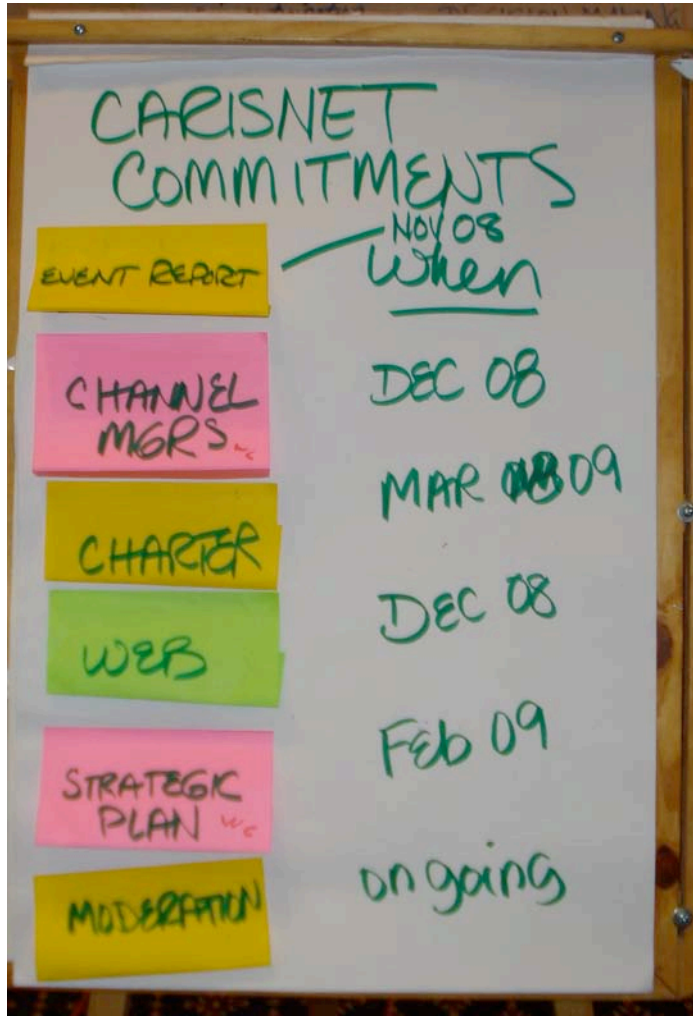 CARISNET
COMMITMENTS
EVENT REPORT
NOV 08
When
CHANNEL
MGRS
DEC 08
CHARTER
MAR 09
WEB
DEC 08
STRATEGIC
PLAN
Feb 09
MODERATION
ongoing